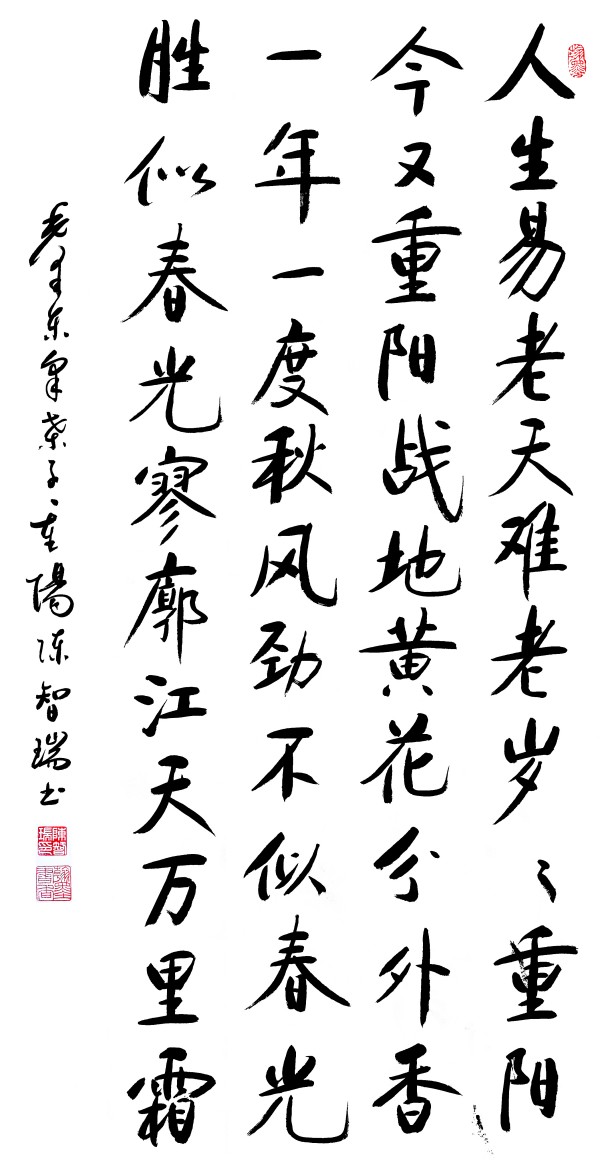 人生易老天难老岁〻重阳
今又重阳战地黄花分外香
一年一度秋风劲不似春光
胜似春光寥廓江天万里霜
毛泽东采桑子、重陽陈智瑞书
陳智瑞印